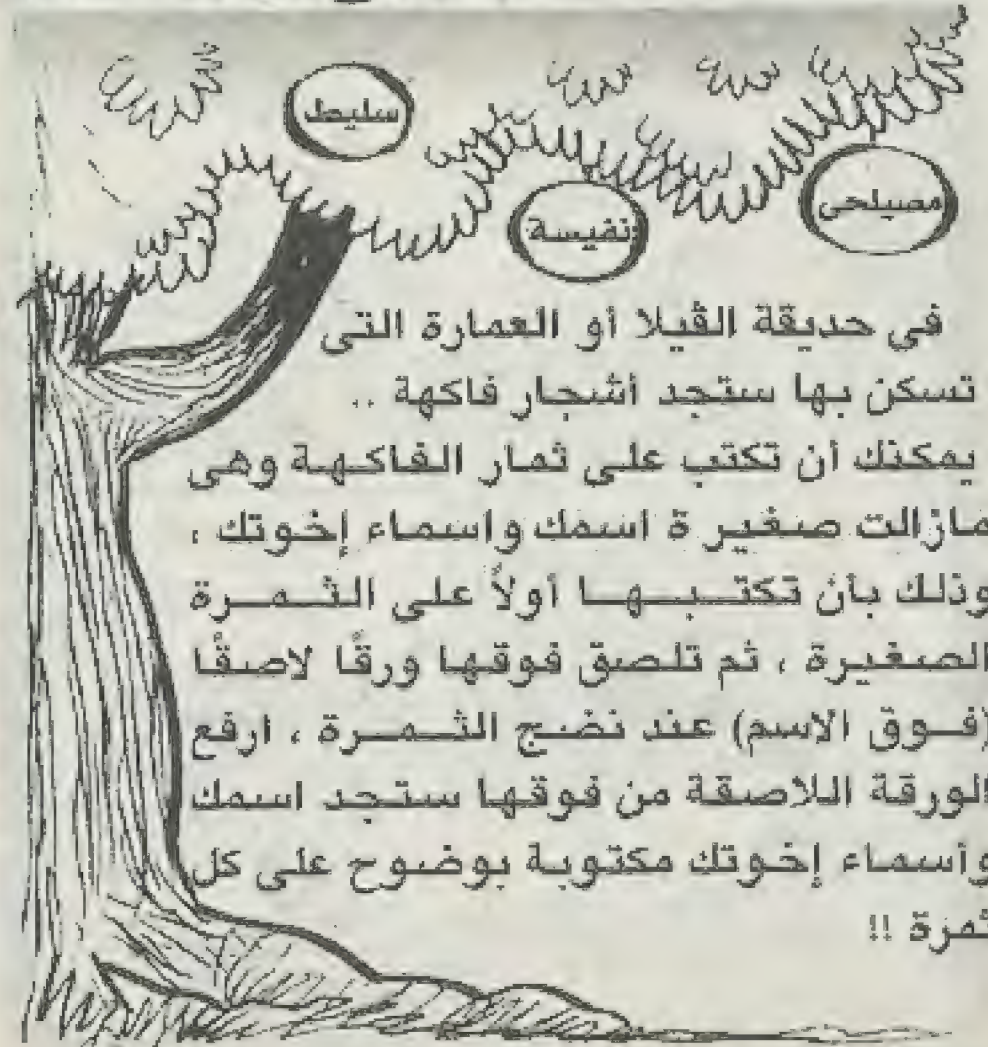 سليط
نفيسة
مصيلحى
في حديقة الڤيلا أو العمارة التى
تسكن بها ستجد أشجار فاكهة ..
يمكنك أن تكتب على ثمار الفاكهة وهى
مازالت صغير ة اسمك واسماء إخوتك ،
وذلك بأن تكتبها أولاً على الثمرة
الصغيرة ، ثم تلصق فوقها ورقًا لاصقًا
(فوق الاسم) عند نضج الثمرة ، ارفع
الورقة اللاصقة من فوقها ستجد اسمك
وأسماء إخوتك مكتوبة بوضوح على كل
ثمرة !!